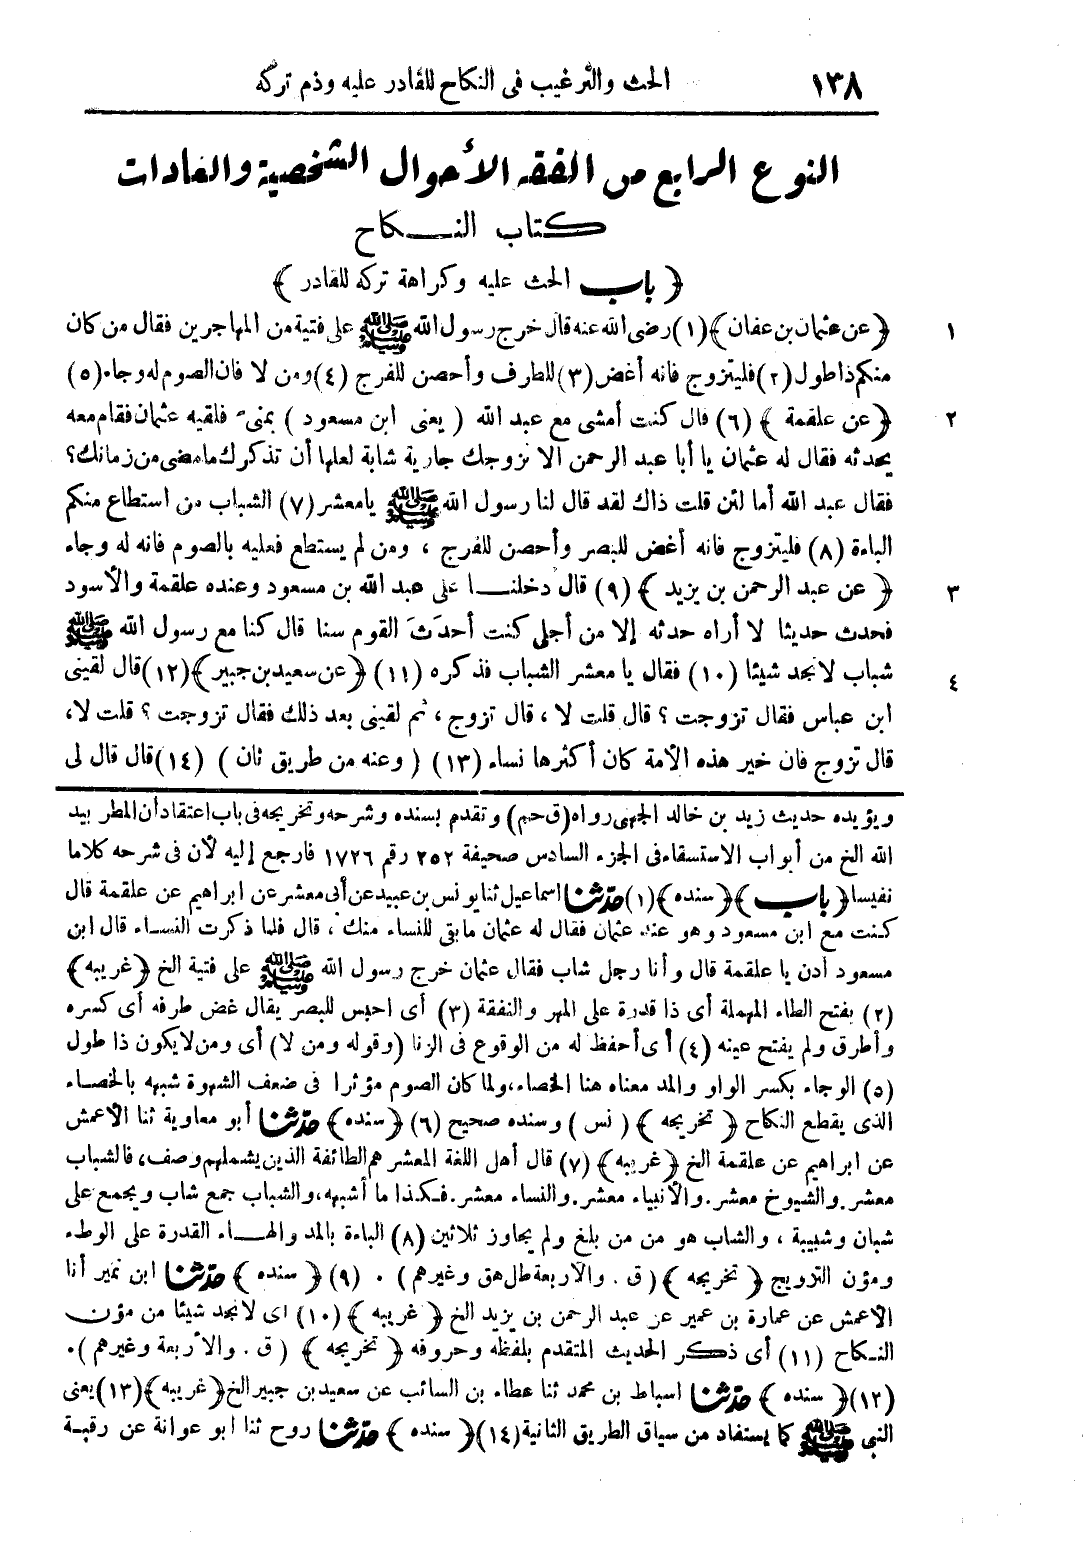 ١٣٨ الحث والترغيب فى النكاح للقادر عليه وذم تركه
النوع الرابع من الفقه الأحوال الشخصية والعادات
كتاب النكاح
﴿ باب الحث عليه وكراهة تركه للقادر ﴾
١ ﴿عن عثمان بن عفان﴾(١) رضى الله عنه قال خرج رسول الله ﷺ على فتية من المهاجرين فقال من كان
منكم ذا طول(٢) فليتزوج فانه أغض(٣) للطرف وأحصن للفرج (٤) ومن لا فان الصوم له وجاء(٥)
٢ ﴿عن علقمة ﴾ (٦) قال كنت أمشى مع عبد الله ( يعنى ابن مسعود ) بمنى فلقيه عثمان فقام معه
يحدثه فقال له عثمان يا أبا عبد الرحمن الا نزوجك جارية شابة لعلها أن تذكرك ما مضى من زمانك؟
فقال عبد الله أما لئن قلت ذاك لقد قال لنا رسول الله ﷺ يامعشر (٧) الشباب من استطاع منكم
الباءة (٨) فليتزوج فانه أغض للبصر وأحصن للفرج ، ومن لم يستطع فعليه بالصوم فانه له وجاء
٣ ﴿ عن عبد الرحمن بن يزيد ﴾ (٩) قال دخلنا على عبد الله بن مسعود وعنده علقمة والأسود
فحدث حديثا لا أراه حدثه إلا من أجلى كنت أحدَثَ القوم سنا قال كنا مع رسول الله ﷺ
شباب لانجد شيئا (١٠) فقال يا معشر الشباب فذكره (١١) ٤ ﴿عن سعيد بن جبير﴾(١٢) قال لقينى
ابن عباس فقال تزوجت ؟ قال قلت لا ، قال تزوج ، ثم لقينى بعد ذلك فقال تزوجت ؟ قلت لا،
قال تزوج فان خير هذه الأمة كان أكثرها نساء (١٣) ( وعنه من طريق ثان ) (١٤) قال قال لى
ويؤيده حديث زيد بن خالد الجهنى رواه (ق حم) وتقدم بسنده وشرحه وتخريجه فى باب اعتقاد أن المطر بيد
الله الخ من أبواب الاستسقاء فى الجزء السادس صحيفة ٢٥٢ رقم ١٧٢٦ فارجع إليه لأن فى شرحه كلاما
نفيسا ﴿باب﴾ ﴿سنده﴾(١) حدّثنا اسماعيل ثنا يونس بن عبيد عن أبى معشر عن ابراهيم عن علقمة قال
كنت مع ابن مسعود وهو عند عثمان فقال له عثمان مابقى للنساء منك ، قال فلما ذكرت النساء قال ابن
مسعود أدن يا علقمة قال وأنا رجل شاب فقال عثمان خرج رسول الله ﷺ على فتية الخ ﴿غريبه﴾
(٢) بفتح الطاء المهملة أى ذا قدرة على المهر والنفقة (٣) أى احبس للبصر يقال غض طرفه أى كسره
وأطرق ولم يفتح عينه (٤) أى أحفظ له من الوقوع فى الزنا (وقوله ومن لا) أى ومن لا يكون ذا طول
(٥) الوجاء بكسر الواو والمد معناه هنا الخصاء، ولما كان الصوم مؤثرا فى ضعف الشهوة شبهه بالخصاء
الذى يقطع النكاح ﴿ تخريجه ﴾ ( نس ) وسنده صحيح (٦) ﴿ سنده﴾ حدّثنا أبو معاوية ثنا الأعمش
عن ابراهيم عن علقمة الخ ﴿غريبه﴾ (٧) قال أهل اللغة المعشر هم الطائفة الذين يشملهم وصف، فالشباب
معشر. والشيوخ معشر. والأنبياء معشر. والنساء معشر. فكذا ما أشبهه، والشباب جمع شاب ويجمع على
شبان وشبيبة ، والشاب هو من من بلغ ولم يجاوز ثلاثين (٨) الباءة بالمد والهاء القدرة على الوطء
ومؤن التزويج ﴿ تخريجه ﴾ ( ق . والأربعة طل هق وغيرهم ) . (٩) ﴿ سنده ﴾ حدّثنا ابن نمير أنا
الاعمش عن عمارة بن عمير عن عبد الرحمن بن يزيد الخ ﴿ غريبه ﴾ (١٠) اى لا نجد شيئا من مؤن
النكاح (١١) أى ذكر الحديث المتقدم بلفظه وحروفه ﴿ تخريجه ﴾ ( ق . والاربعة وغيرهم ) .
(١٢) ﴿ سنده ﴾ حدّثنا اسباط بن محمد ثنا عطاء بن السائب عن سعيد بن جبير الخ ﴿غريبه﴾ (١٣) يعنى
النبى ﷺ كما يستفاد من سياق الطريق الثانية (١٤) ﴿ سنده ﴾ حدّثنا روح ثنا ابو عوانة عن رقبة